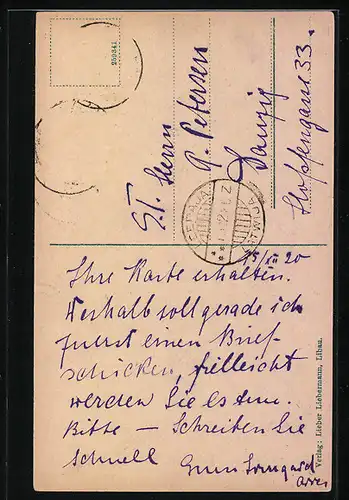 259341
ST. Herrn
G. Petersen
Danzig
Hopfengasse 33.
15/XII 20
Ihre Karte erhalten.
Weshalb soll gerade ich
zuerst einen Brief
schicken, fielleicht
werden Sie es tun.
Bitte — Schreiben Sie
schnell
Verlag: Lieber Liebermann, Libau.